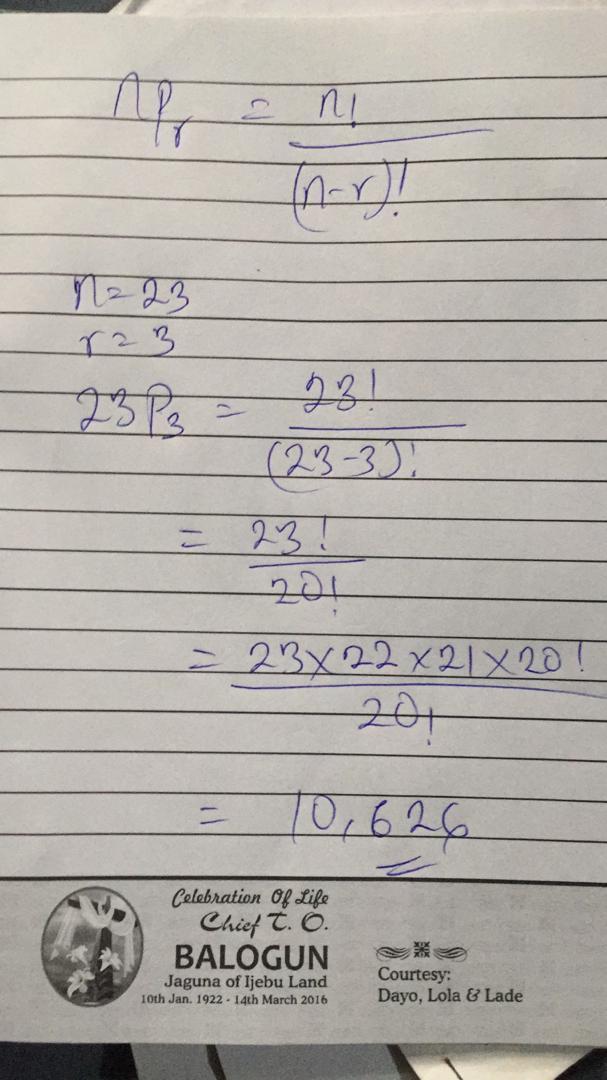 nPr = n!
(n-r)!
n=23
r=3
23P3 = 23!
(23-3)!
= 23!
20!
= 23×22×21×20!
20!
= 10,626
Celebration Of Life
Chief T. O.
BALOGUN
Jaguna of Ijebu Land
10th Jan. 1922 - 14th March 2016
Courtesy:
Dayo, Lola & Lade